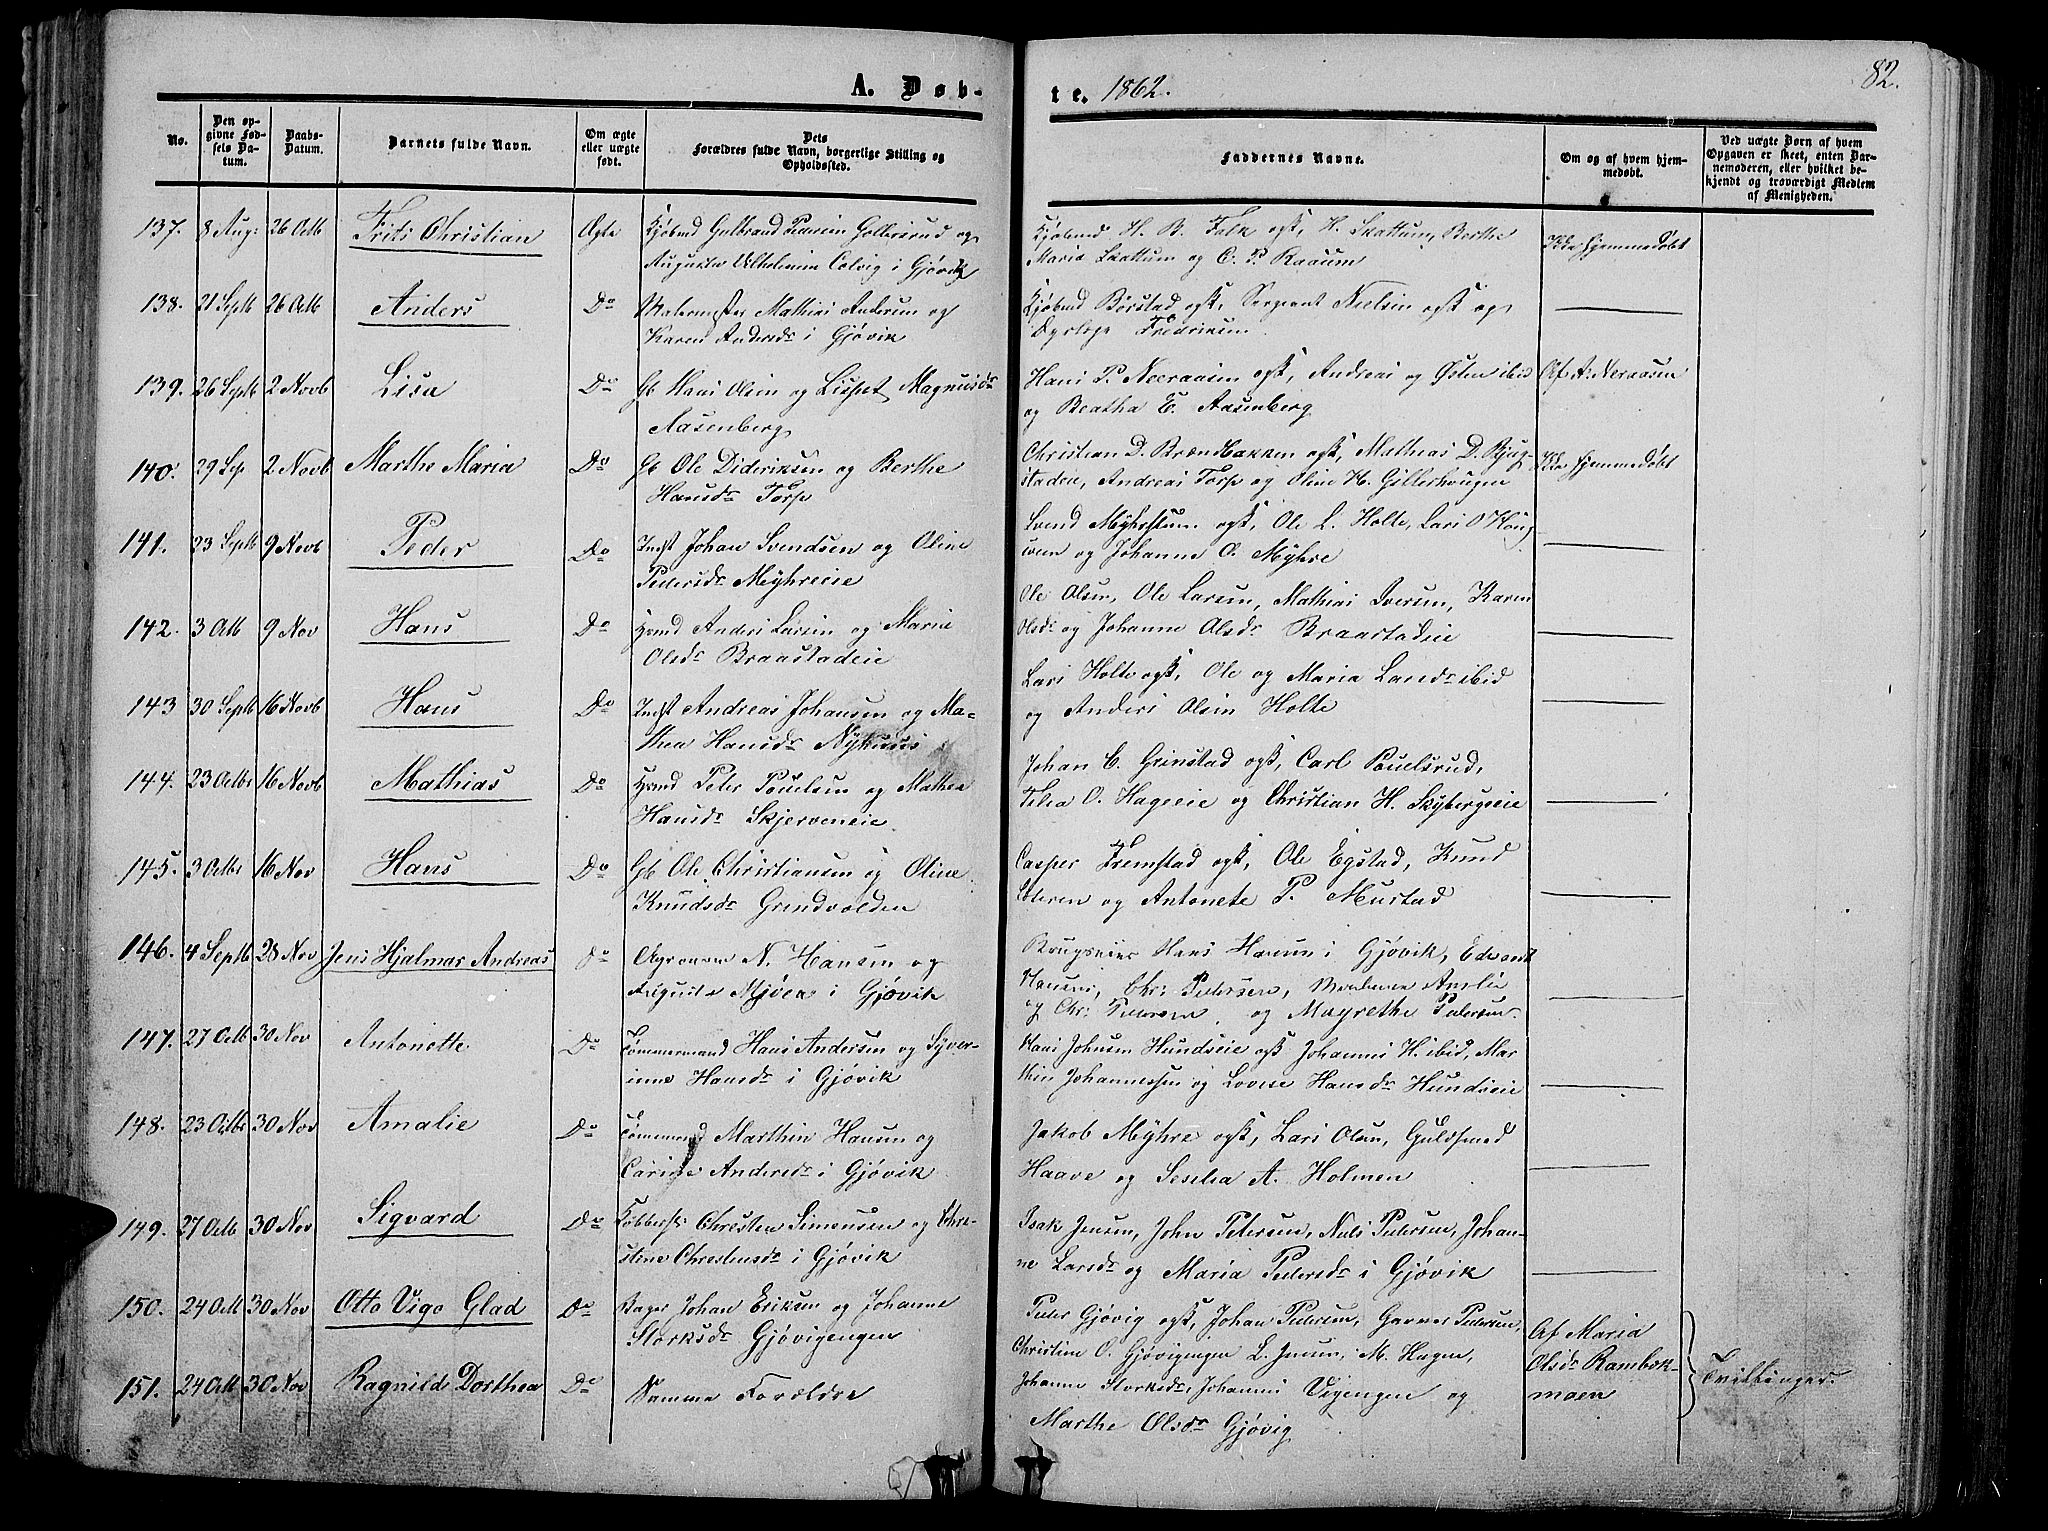 A. Døb-
te. 1862.
82.
No.
Den op-
givne Fød-
sels Da-
tum.
Daabs-
Datum.
Barnets fulde Navn.
Om ægte
eller uægte
født.
Dets
Forældres fulde Navn, borgerlige Stilling og
Opholdssted.
Faddernes Navne.
Om og af hvem hjem-
medøbt.
Ved uægte Børn af hvem
Opgaven er skeet, enten Bar-
nemoderen, eller hvilket be-
kjendt og troværdigt Medlem
af Menigheden.
137. 8 Aug: 26 Octb Frits Christian Ægte Kjøbmd Gulbrand Pedersen Gollersrud og
Augusta Vilhelmine Colvig i Gjøvik
Kjøbmd H. B. Falk ogsk, H. Skattum, Berthe
Maria Skattum og C. P. Raaum
Ikke hjemmedøbt
138. 21 Septb 26 Octb Anders Do Malermester Mathias Andersen og
Karen Andersdr i Gjøvik
Kjøbmd Børstad ogsk, Sergeant Nielsen ogsk og
Fredriksen
139. 26 Septb 2 Novb Lisa Do Gb Hans Olsen og Lisbet Magnusdr
Aasenberg
Hans P. Neeraasen ogsk, Andreas og Østen ibid
og Beatha E. Aasenberg
Af A. Neraasen
140. 29 Sep 2 Novb Marthe Maria Do Gb Ole Dideriksen og Berthe
Hansdr Torp
Christian D. Brændbakken ogsk, Mathias D. Bjug-
stadeie, Andreas Torp og Oline H. Gillerhougen
Ikke hjemmedøbt
141. 23 Septb 9 Novb Peder Do Indst Johan Svendsen og Oline
Pedersdr Mÿhreeie
Svend Mÿhrstuen ogsk, Ole L. Holte, Lars O Houg-
og Johanne O. Mÿhre
142. 3 Octb 9 Nov Hans Do Hmd Anders Larsen og Marie
Olsdr Braastadeie
Ole Olsen, Ole Larsen, Mathias Iversen, Karen
Olsdr og Johanne Olsdr Braastadeie
143 30 Septb 16 Novb Hans Do Indst Andreas Johansen og Ma-
thea Hansdr Nÿhuus
Lars Holte ogsk, Ole og Maria Larsdr ibid
og Anders Olsen Holte
144. 23 Octbr 16 Novb Mathias Do Hmd Peter Pouelsen og Mathea
Hansdr Skjerveneie
Johan C. Grinstad ogsk, Carl Pouelsrud,
O. Hageeie og Christian H. Skÿbergeeie
145. 3 Octbr 16 Nov Hans Do Gb Ole Christiansen og Oline
Knudsdr Grindvolden
Casper Fremstad ogsk, Ole Egstad, Knud
og Antonete P. Mustad
146. 4 Septb 28 Nov Jens Hjalmar Andreas Do Agronom N. Hansen og
Auguste Mjøen i Gjøvik
Brugseier Hans Hansen i Gjøvik, Edvardt
Hansen, Chr: Petersen, Madame Amalie
og Chr: Petersen, og Magrethe Pedersen.
147. 27 Octb 30 Nov Antonette Do Tømmermand Hans Andersen og Syver-
inne Hansdr i Gjøvik
Hans Johnsen Hundseie ogsk Johannes H. ibid, Mar-
thin Johannessen og Lovise Hansdr Hundseie
148. 23 Octbr 30 Nov Amalie Do Tømmermd Marthin Hansen og
Carine Andersdr i Gjøvik
Jakob Mÿhre ogsk, Lars Olsen, Guldsmed
Haave og Seselia A. Holmen
149. 27 Octb 30 Nov Sigvard Do Kobbersl: Christen Simensen og Chri-
stine Christensdr i Gjøvik
Isak Jensen, John Petersen, Niels Pedersen, Johan-
ne Larsdr og Maria Pedersdr i Gjøvik
150. 24 Octb 30 Nov Otto Vigo Glad Do Bager Johan Eriksen og Johanne
Storksdr Gjøvigengen
Peter Gjøvig ogsk, Johan Pedersen, Garver Pedersen,
Christine O. Gjøvigengen L. Jensen, M. Hagen,
Af Maria
Olsdr Rambæk-
moen
151. 24 Octb 30 Nov Ragnilde Dorthea Do Samme Forældre
Johanne Storksdr, Johannes Vigengen og
Marthe Olsdr Gjøvig
Tvillinger.